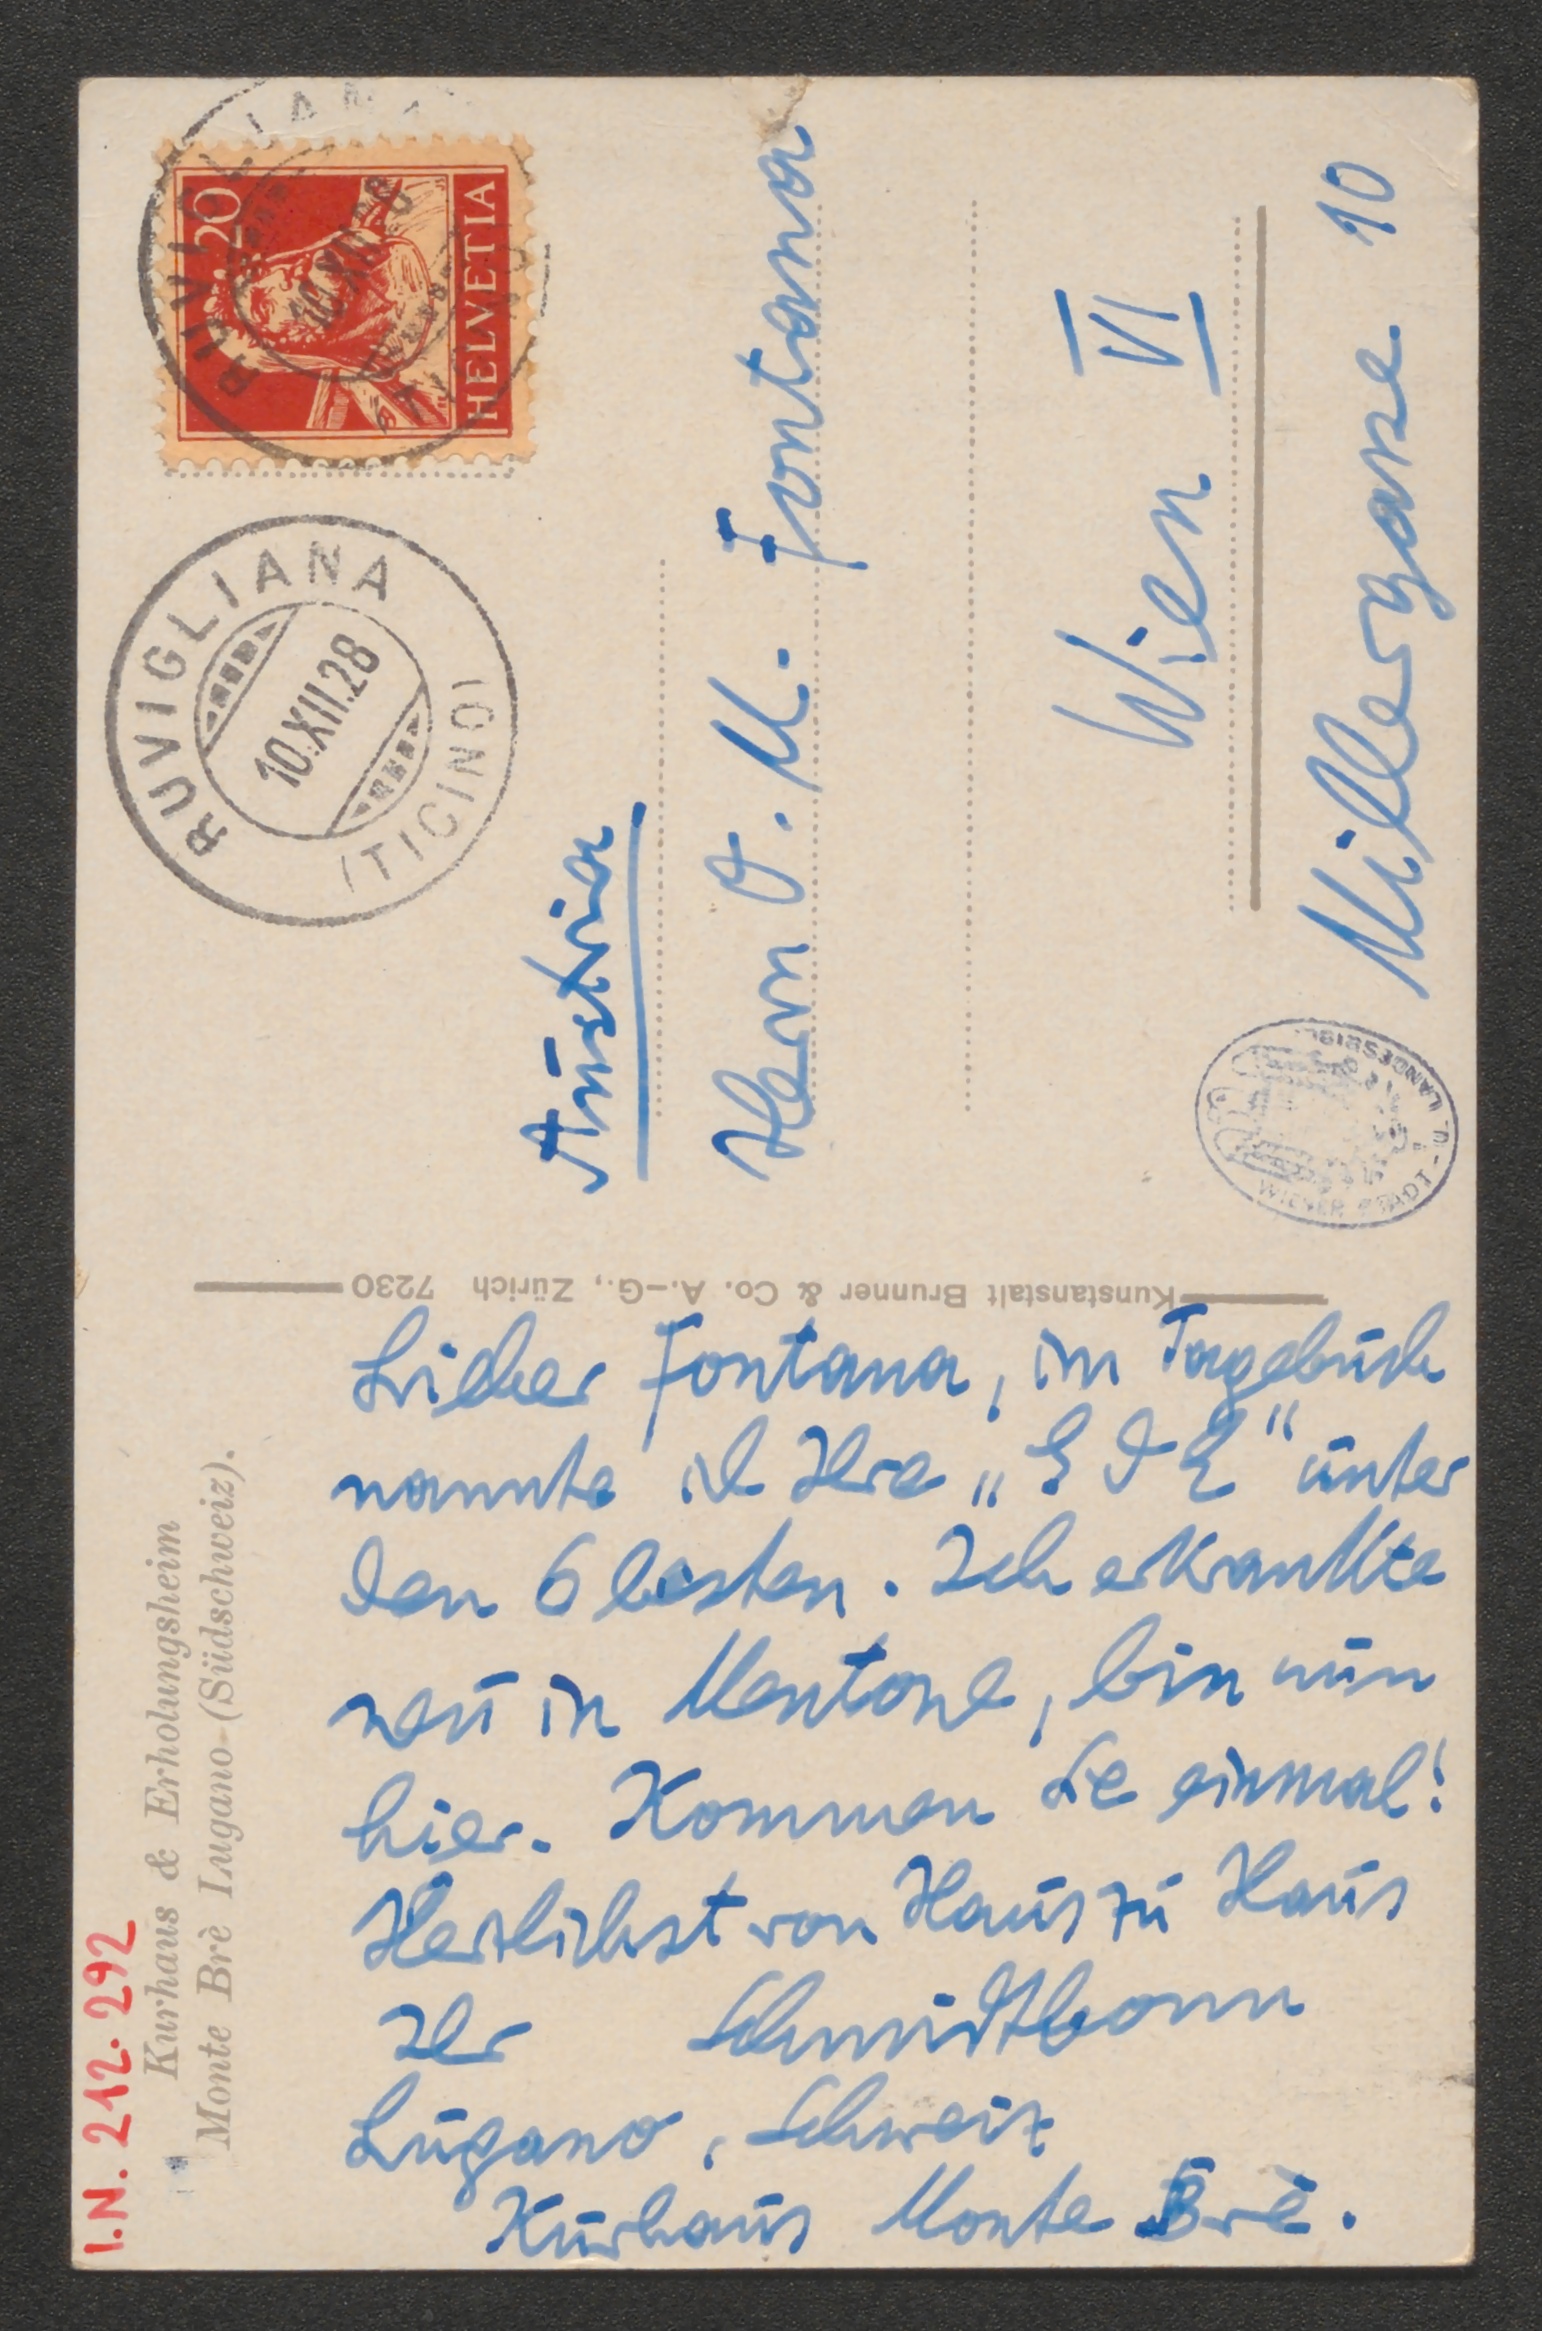 I.N. 212.292
Kurhaus & Erholungsheim
Monte Brè Lugano (Südschweiz).
Lieber Fontana, im Tagebuch
nannte ich Ihre „G d E“ unter
den 6 besten. Ich erkrankte
neu in Mentone, bin nun
hier. Kommen Sie einmal!
Herzlichst von Haus zu Haus
Ihr Schmidtbonn
Lugano, Schweiz
Kurhaus Monte Brè.
Kunstanstalt Brunner & Co. A.-G., Zürich 7230
HELVETIA
20
RUVIGLIANA
10.XII.28
RUVIGLIANA
10.XII.28
(TICINO)
Austria
Herrn O. M. Fontana
Wien VI
Millergasse 10
WIENER STADT- U. LANDESBIBL.